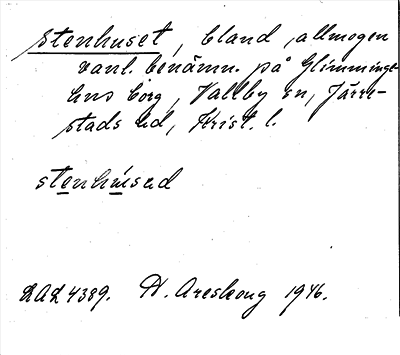 stenhuset, bland allmogen
vanl. benämn. på Glimminge-
hus borg, Vallby sn, Järre-
stads hd, Krist. l.
stenhúsed
LAL 4389. H. Areskoug 1946.